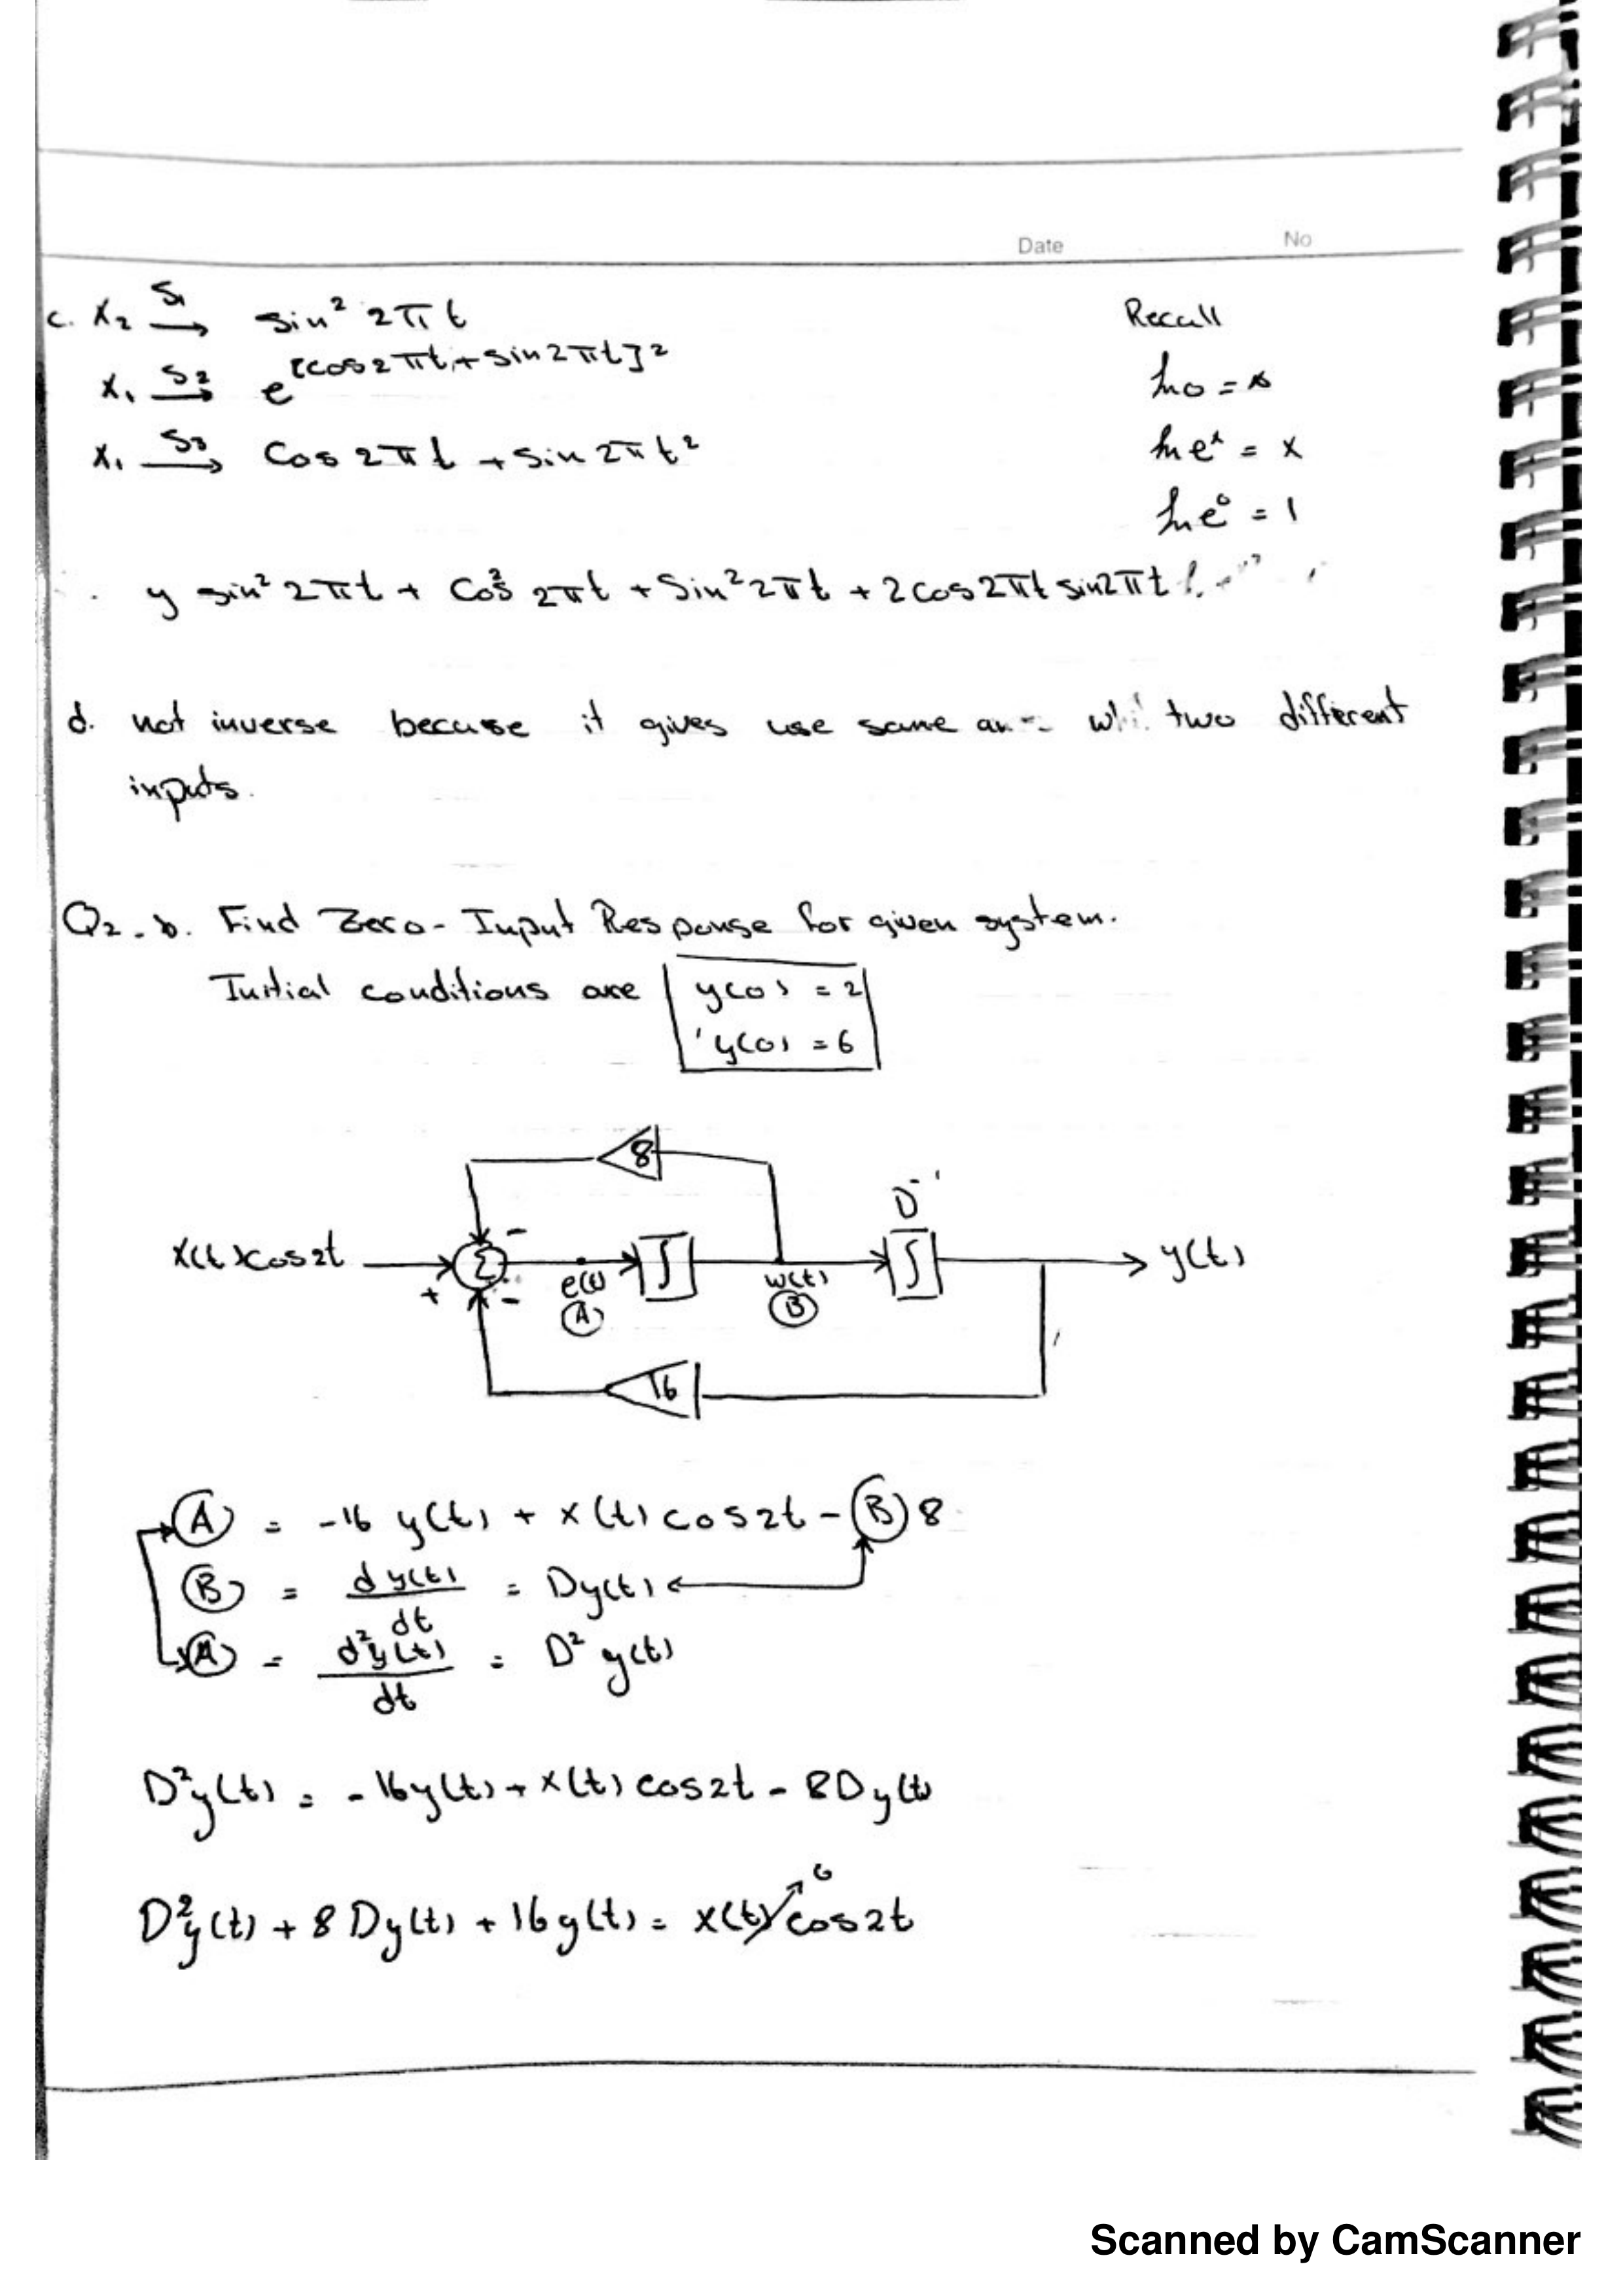 Date No
c. x₂ S₁→ sin² 2πt
x₁ S₂→ e^[cos2πt+sin2πt]²
x₁ S₃→ Cos 2πt + Sin 2πt²
Recall
ln e^x = x
ln e⁰ = 1
y sin² 2πt + Cos² 2πt + Sin² 2πt + 2 cos2πt sin2πt
d. not inverse becuse it gives use same two different
inputs.
Q2. b. Find Zero-Input Response for given system.
Initial conditions are y(0) = 2
'y(0) = 6
8
D⁻¹
x(t)cos2t + - Σ - e(t) ∫ w(t) ∫ y(t)
A B
16
A = -16 y(t) + x(t) cos2t - B 8
B = dy(t)/dt = Dy(t)
A = d²y(t)/dt = D² y(t)
D²y(t) = -16y(t) + x(t) cos2t - 8Dy(t)
D²y(t) + 8 Dy(t) + 16y(t) = x(t) cos2t 0
Scanned by CamScanner